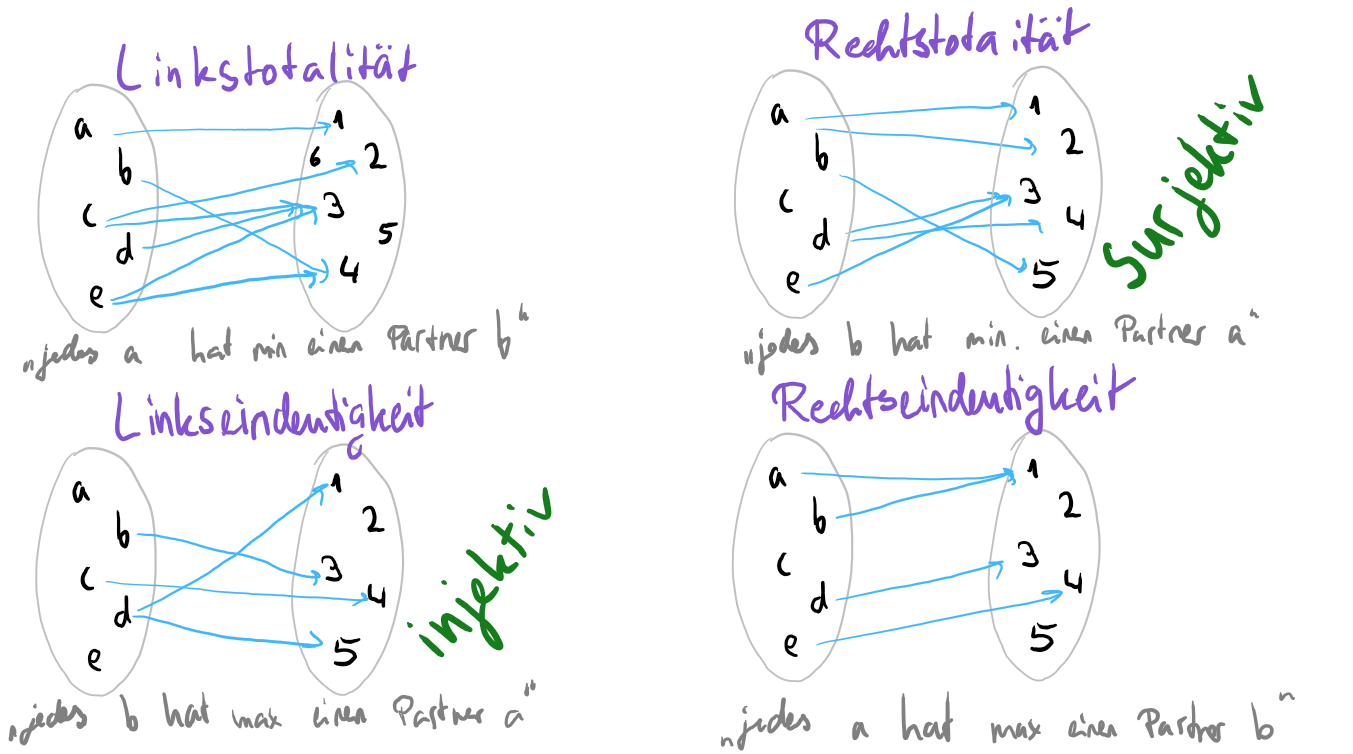 Linkstotalität
a
b
c
d
e
1
6
2
3
5
4
„jedes a hat min einen Partner b“
Rechtstotalität
a
b
c
d
e
1
2
3
4
5
Surjektiv
„jedes b hat min. einen Partner a“
Linkseindeutigkeit
a
b
c
d
e
1
2
3
4
5
injektiv
„jedes b hat max einen Partner a“
Rechtseindeutigkeit
a
b
c
d
e
1
2
3
4
5
„jedes a hat max einen Partner b“